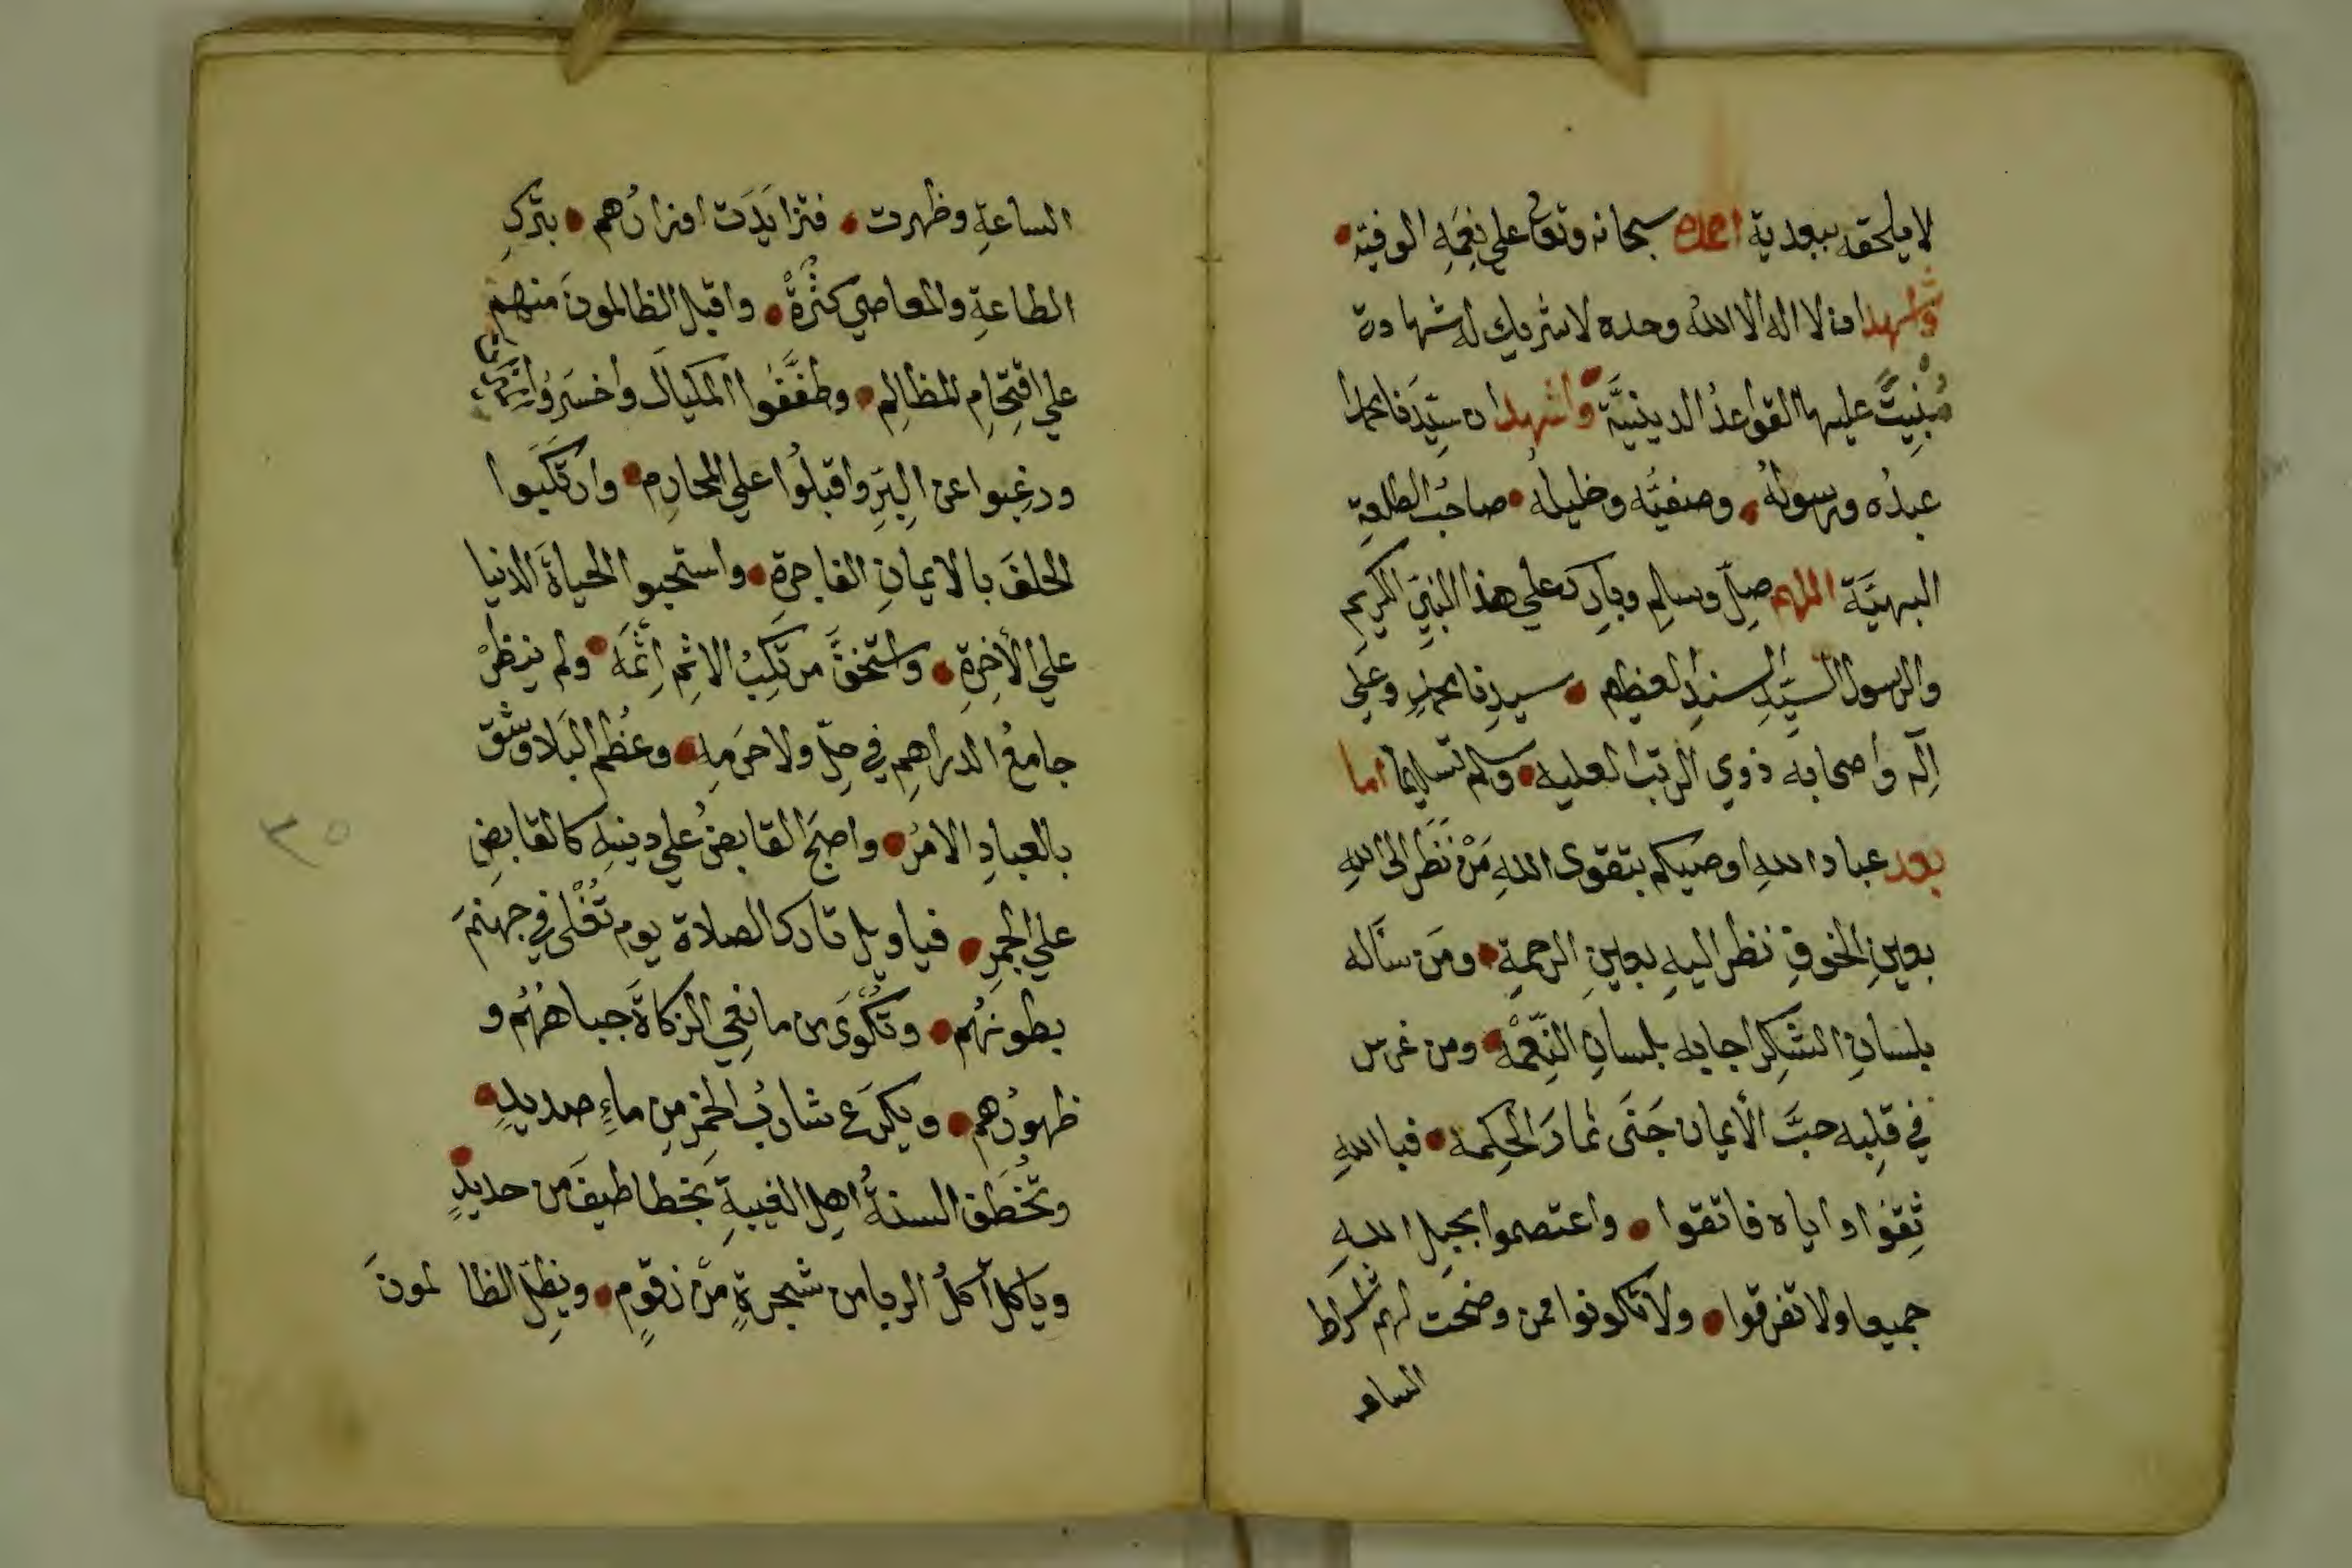 لا يلحقه ببعدية احمده سبحانه وتعالى على نعمه الوفية
واشهد ان لا اله الا الله وحده لا شريك له شهادة
بُنِيَتْ عليها القواعدُ الدينيَّة واشهد ان سيّدَنا محمدا
عبدُه ورسولُه وصفيَّه وخليلُه صاحبُ الطلعةِ
البهيَّة اللهم صلِّ وسلم وبارك على هذا النبيِّ الكريمِ
والرسول السيّدِ السندِ العظيم سيدِنا محمدٍ وعلى
آلِه واصحابه ذوي الرتب العليه وسلم تسليما اما
بعد عباد اللهِ اوصيكم بتقوى اللهِ مَنْ نَظَر الى اللهِ
بعينِ الخوفِ نظر اليهِ بعينِ الرحمةِ ومَن سَأله
بلسانِ الشكرِ اجابه بلسانِ النِّعْمَة ومن غرس
في قلبِه حبَّ الأيمان جَنَى ثمارَ الحِكمه فبا اللهِ
ثِقوا واياه فاتقوا واعتصموا بحبلِ اللهِ
جميعا ولا تفرقوا ولا تكونوا ممن وضحَت لهم أشراط
الساعـ
الساعةِ وظهرت فتزايَدَت اوزارُهم بتركِ
الطاعةِ والمعاصي كثْرةً واقبل الظالمونَ منهم
على اقتِحامِ المظالِمِ وطفَّفُوا المكيالَ واخسَرُوا
ورغِبوا عن البِرِّ واقبلُوا على المحارِمِ وارتكَبَوا
الحلفَ بالايمانِ الفاجرةِ واستحبوا الحياةَ الدنيا
على الأخِرةِ واستخفَّ مرتكِبُ الاثمِ اِثمَه ولم ينظرْ
جامعُ الدراهمِ في حِلِّه ولا حَرَمِه وعظُم البَلا وشق
بالعبادِ الامرُ واصبحَ القابضُ على دينِه كالقابضِ
على الجمرِ فياويل تارك الصلاة يوم تُغْلى في جهنمَ
بطونُهُم وتُكْوَى من مانعِي الزكاةَ جباهُهُم و
ظهورُهم ويكرَع شاربُ الخمرِ مِن ماءٍ صديدٍ
وتُخْطَف السنةُ اهلِ الغيبةِ بخطاطيفَ من حديدٍ
وياكل آكلُ الربا من شجرةٍ مّن زقّومٍ ويظِلّ الظالمونَ
٣٥